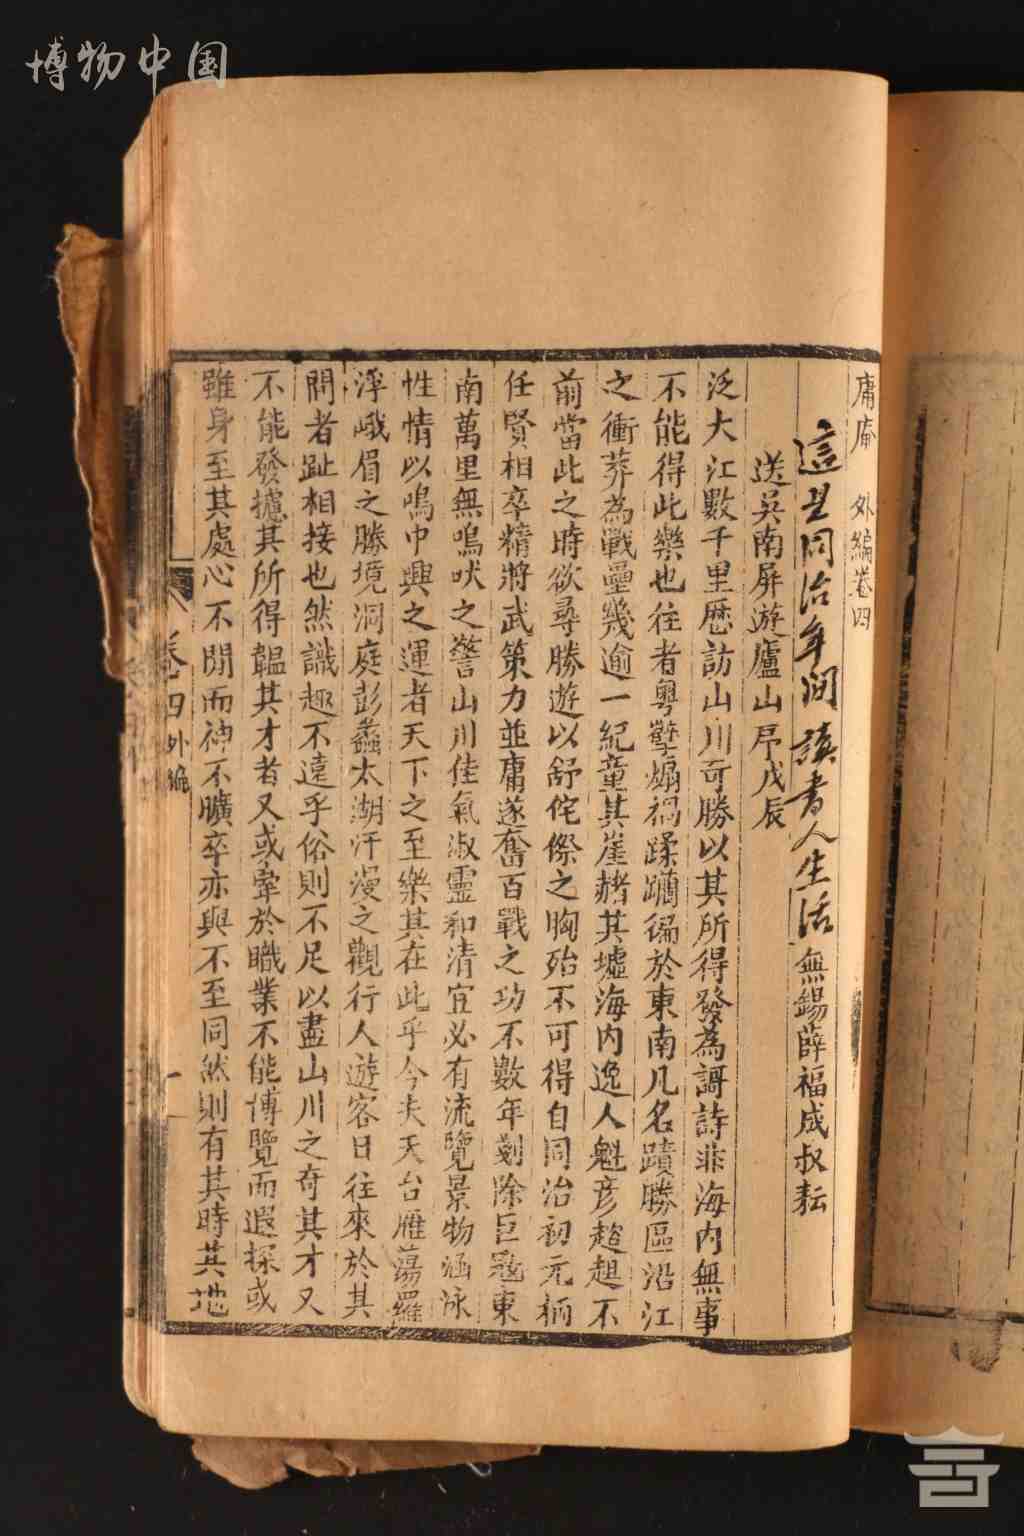 博物中国
庸庵　外編卷四
這是同治年间读书人生活　無錫薛福成叔耘
送吳南屏遊廬山序戊辰
泛大江數千里歷訪山川奇勝以其所得發為謌詩非海内無事
不能得此樂也往者粤孽煽禍蹂躪徧於東南凡名蹟勝區沿江
之衝莽為戰壘幾逾一紀童其崖赭其墟海内逸人魁彥趑趄不
前當此之時欲尋勝遊以舒侘傺之胸殆不可得自同治初元柄
任賢相卒精將武策力並庸遂奮百戰之功不數年剗除巨寇東
南萬里無鳴吠之警山川佳氣淑靈和清宜必有流覽景物涵泳
性情以鳴中興之運者天下之至樂其在此乎今夫天台雁蕩羅
浮峨眉之勝境洞庭彭蠡太湖汗漫之觀行人遊客日往來於其
間者趾相接也然識趣不遠乎俗則不足以盡山川之奇其才又
不能發攄其所得韞其才者又或牽於職業不能博覽而遐探或
雖身至其處心不閒而神不曠卒亦與不至同然則有其時其地
卷四外編
一